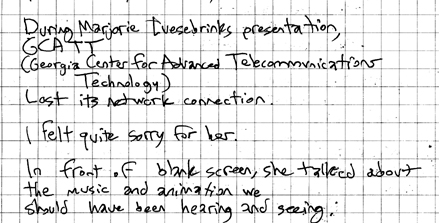 During Marjorie Ivesebrinks presentation,
GCATT
(Georgia Center for Advanced Telecommunications
Technology)
Lost its network connection.
I felt quite sorry for her.
In front of blank screen, she talked about
the music and animation we
should have been hearing and seeing: